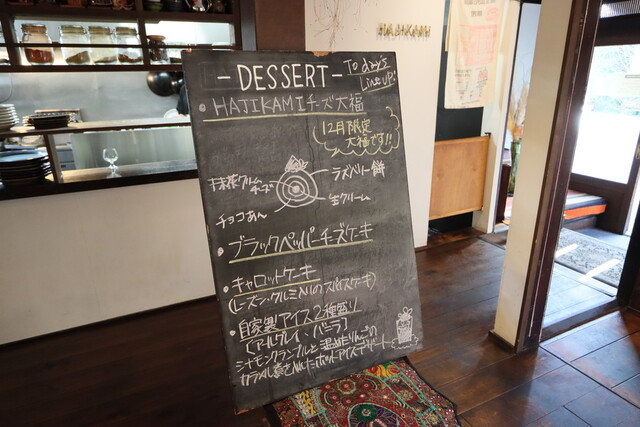 HAJIKAMI
- DESSERT -
To day's
Line up!
・HAJIKAMIチーズ大福
12月限定
大福です!!
抹茶クリーム
チーズ
ラズベリー餅
チョコあん
生クリーム
・ブラックペッパーチーズケーキ
・キャロットケーキ
(レーズン・クルミ入りのスパイスケーキ)
・自家製アイス2種盛り
[アールグレイ・バニラ]
シナモンクランブルと温めたりんごの
カラメル煮を入れたホットアイスデザート